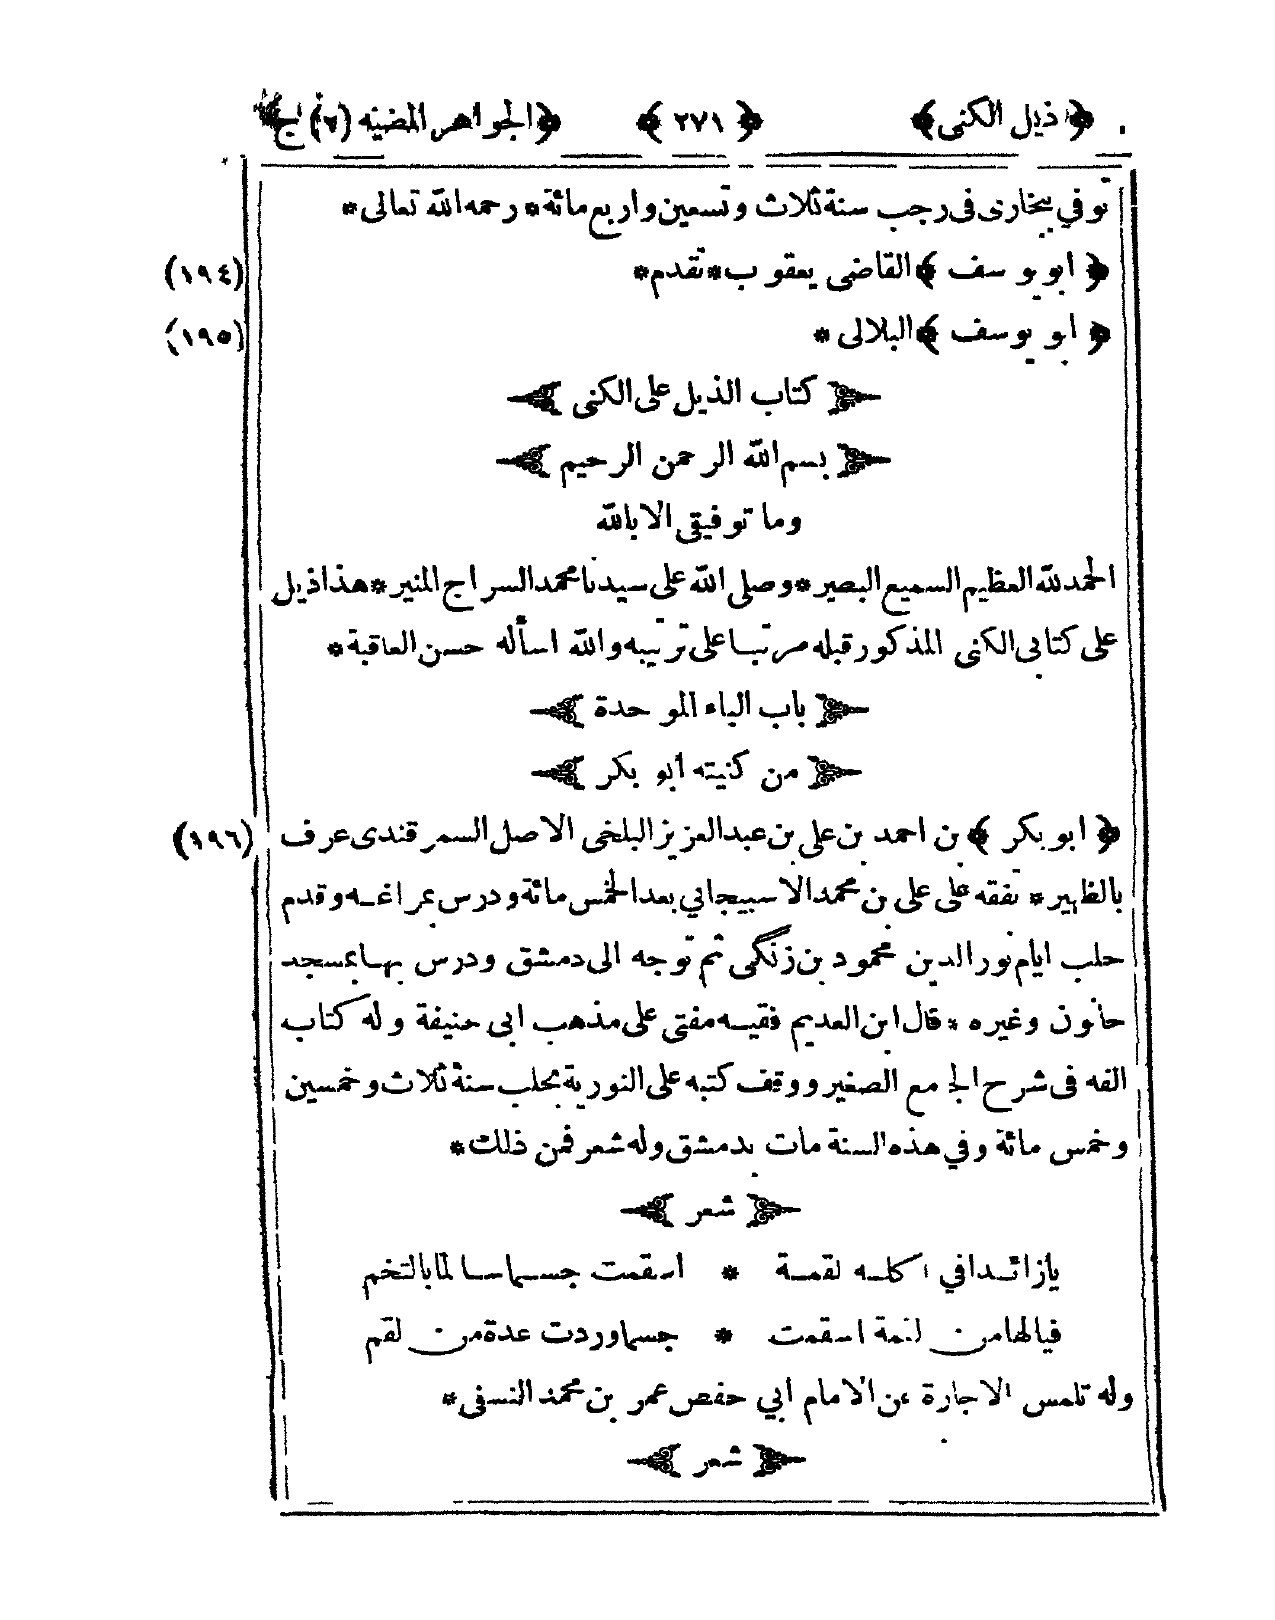 ﴿ذيل الكنى﴾ ﴿٢٧١﴾ ﴿الجواهر المضيئه (٢) ج﴾
توفي ببخارى فى رجب سنة ثلاث وتسعين واربع مائة * رحمه الله تعالى *
﴿ ابويوسف ﴾ القاضى يعقوب * تقدم * (١٩٤)
﴿ ابو يوسف ﴾ البلالى * (١٩٥)
كتاب الذيل على الكنى
بسم الله الرحمن الرحيم
وما توفيقى الا بالله
الحمد لله العظيم السميع البصير * وصلى الله على سيدنا محمد السراج المنير * هذا ذيل
على كتابى الكنى المذكور قبله مرتبا على ترتيبه والله اسأله حسن العاقبة *
باب الباء الموحدة
من كنيته أبو بكر
﴿ ابو بكر ﴾ بن احمد بن على بن عبد العزيز البلخى الاصل السمرقندى عرف (١٩٦)
بالظهير * تفقه على على بن محمد الاسبيجابي بعد الخمس مائة ودرس بمراغه وقدم
حلب ايام نور الدين محمود بن زنگى ثم توجه الى دمشق ودرس بها بمسجد
خاتون وغيره * قال ابن العديم فقيه مفتى على مذهب ابى حنيفة وله كتاب
الفه فى شرح الجامع الصغير ووقف كتبه على النورية بحلب سنة ثلاث وخمسين
وخمس مائة وفي هذه السنة مات بدمشق وله شعر فمن ذلك *
شعر
يا زائدا في اكله لقمة * أسقمت جسما سالما بالتخم
فيالها من لقمة اسقمت * جسما وردت عدة من لقم
وله تلمس الاجارة عن الامام أبي حفص عمر بن محمد النسفى *
شعر